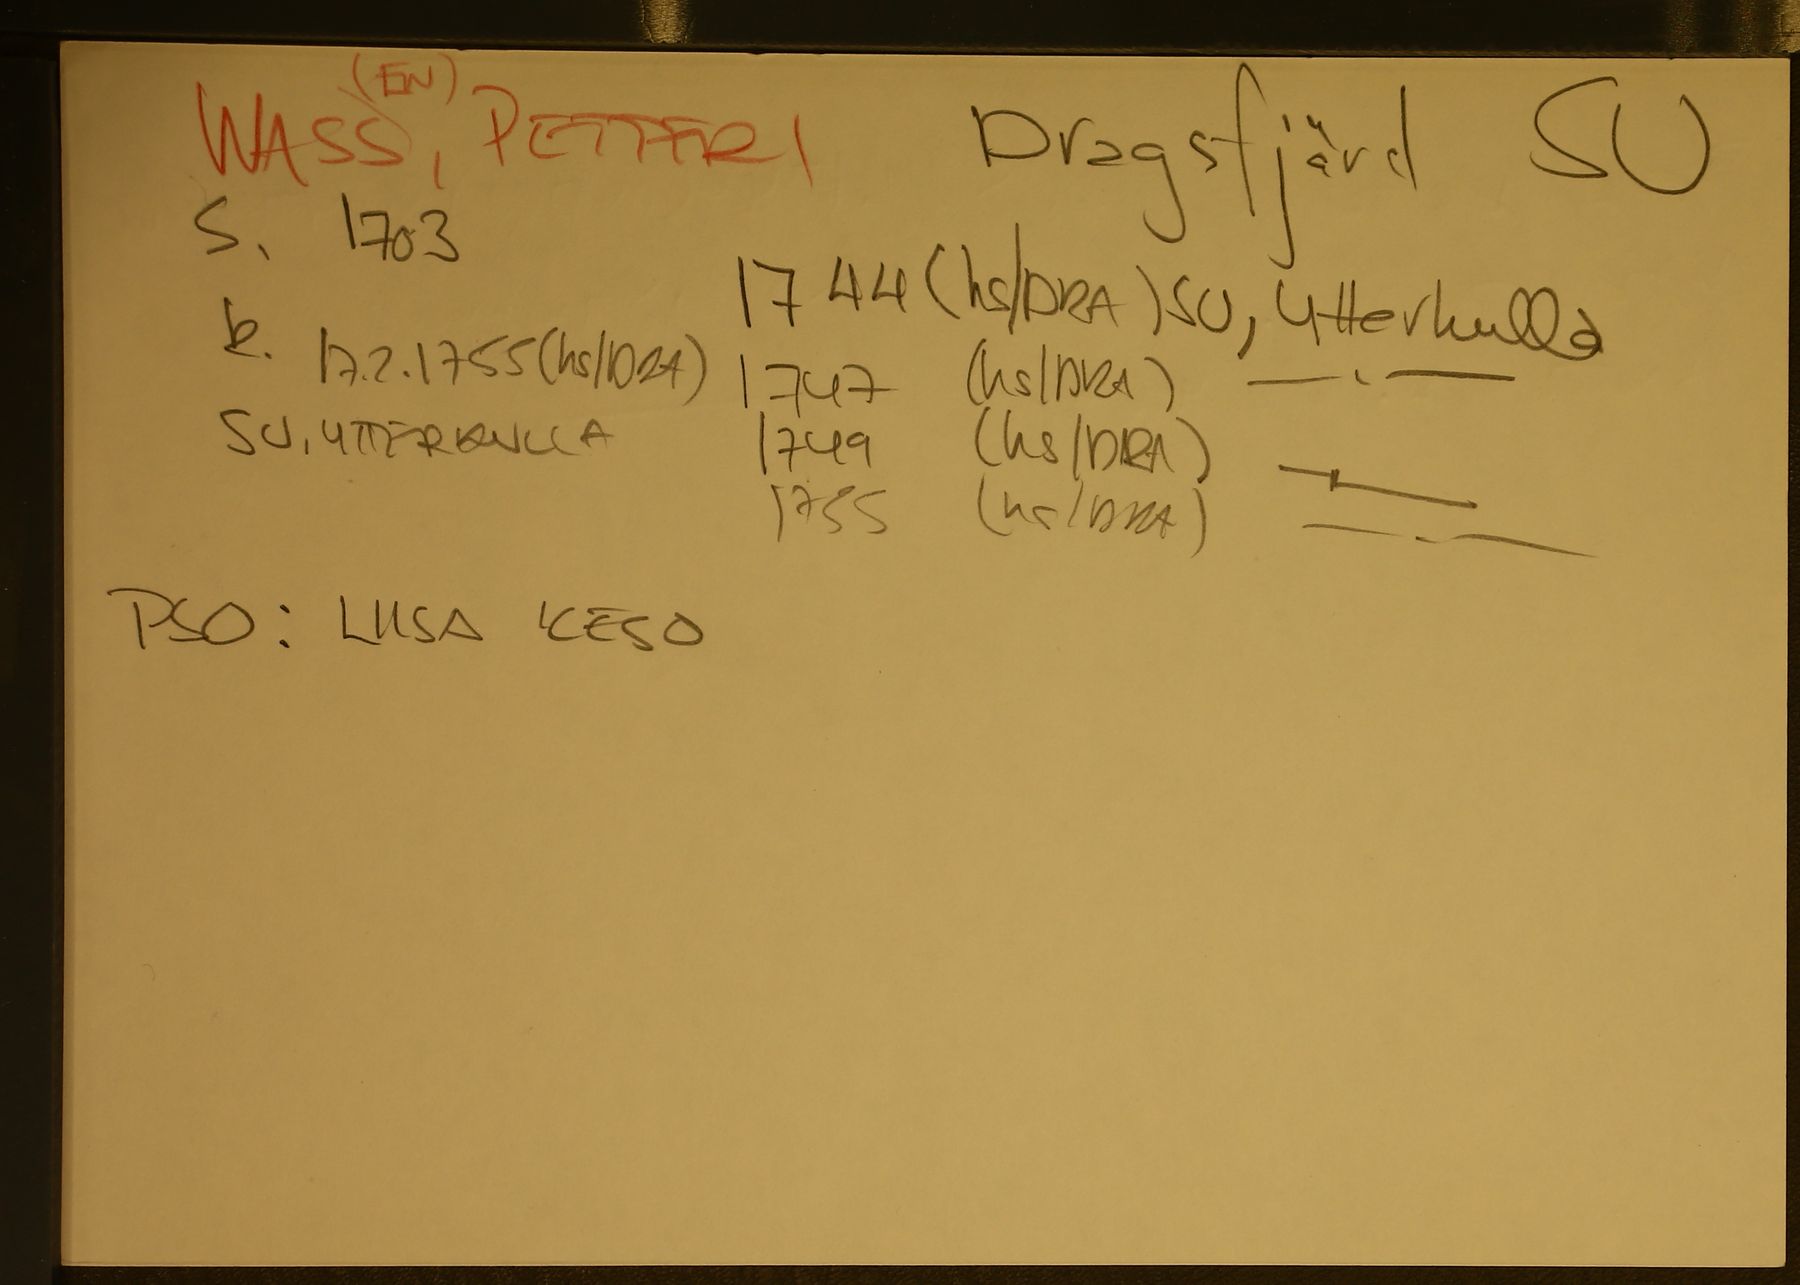 WASS(EN), PETTERI Dragsfjärd SU
S. 1703
1744 (hs/DRA) SU, Ytterkulla
k. 17.2.1755 (hs/DRA) 1747 (hs/DRA) —〃—
SU, YTTERKULLA 1749 (hs/DRA) —〃—
1755 (hs/DRA) —〃—
PSO: LIISA KESO